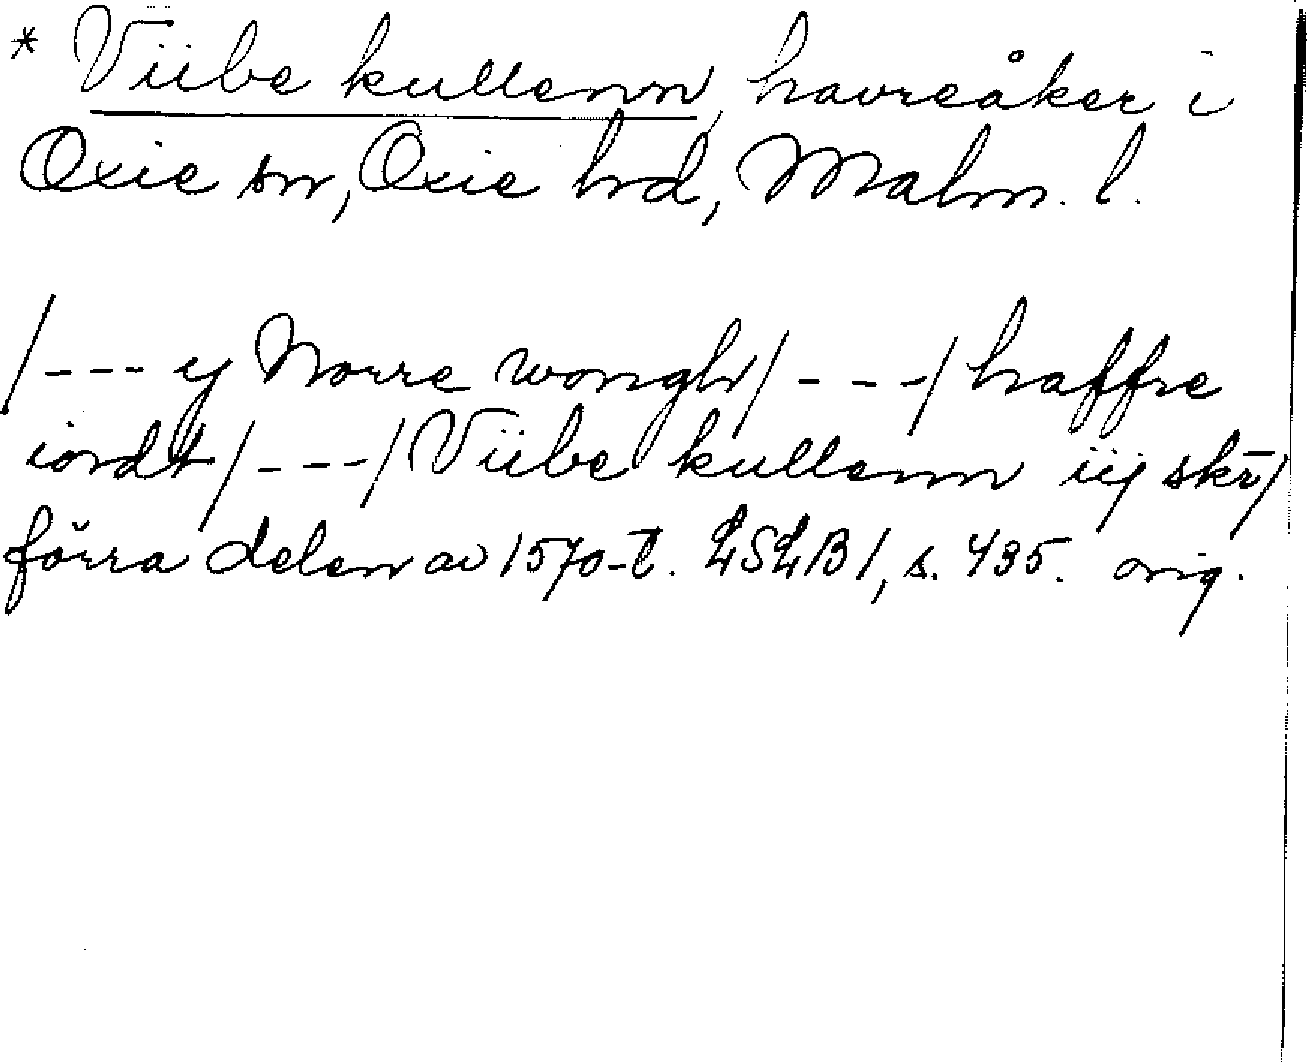 * Viibe kullenn, havreåker i
Oxie sn, Oxie hd, Malm. l.
/--- y Norre wongh/ - - -/ haffre
iordt/ - - -/ Viibe kullenn iij skr̄/
förra delen av 1570-t. LSLB 1, s. 435. orig.